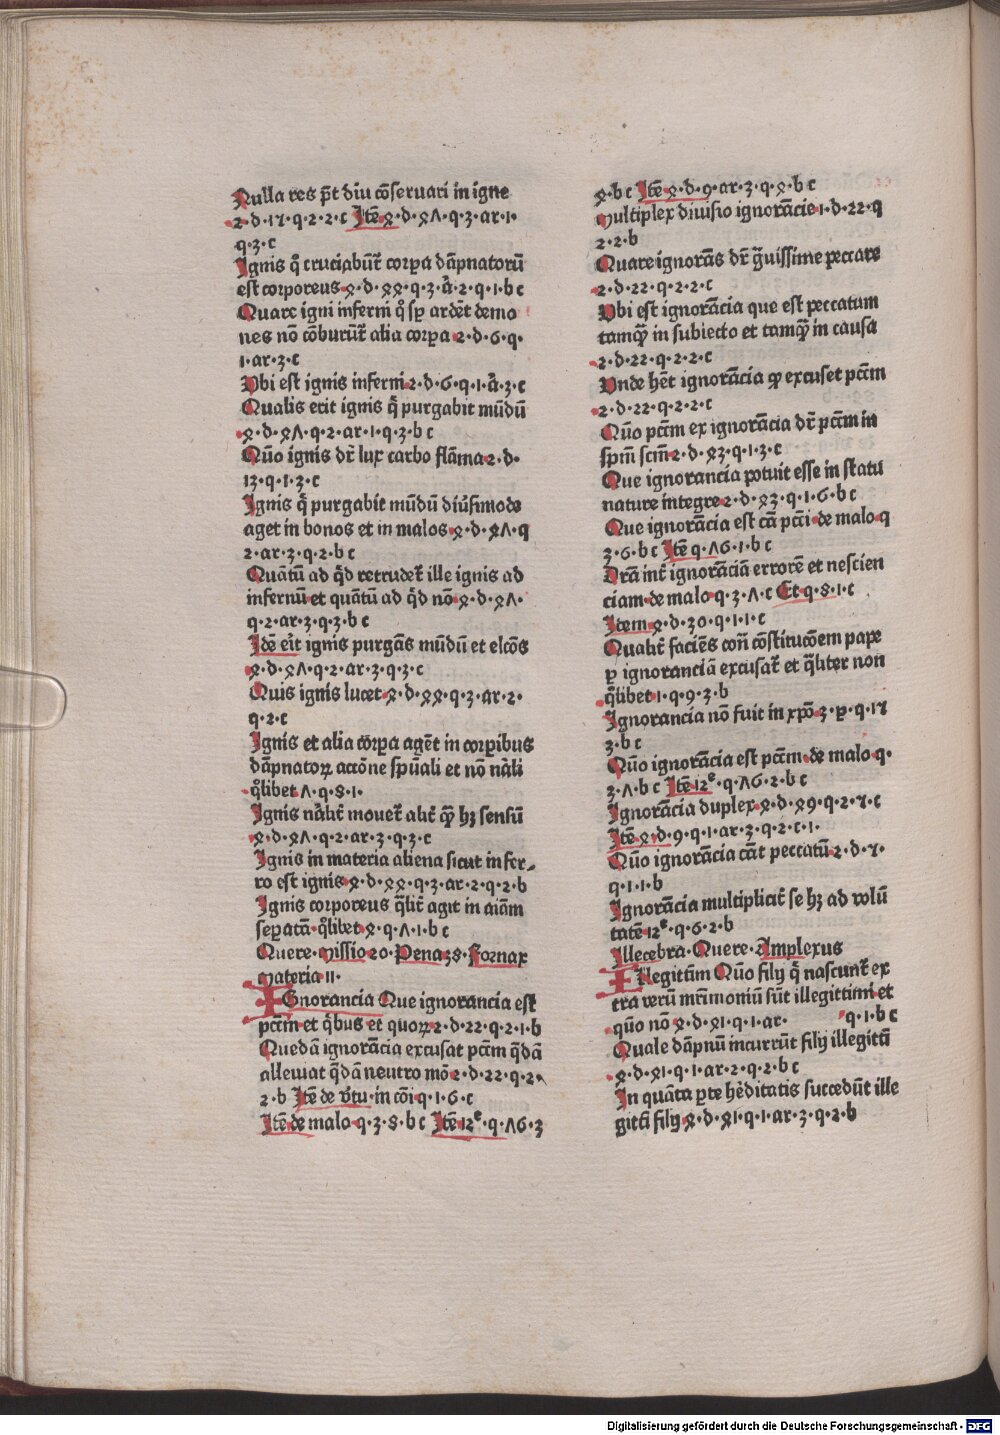 Nulla res pōt diu cōseruari in igne
2·d·17·q·2·2·c Itē 4·d·47·q·3·ar·1·
q·3·c
Ignis q̄ cruciabūt̄ corꝑa dāpnatorū
est corporeus 4·d·44·q·3·a̅·2·q·1·b c
Quare igni inferni q̊ sꝑ ardēt demo
nes nō cōburūt̄ alia corꝑa 2·d·6·q·
1·ar·3·c
Vbi est ignis inferni 2·d·6·q·1·a̅·3·c
Qualis erit ignis q̄ purgabit mūdū
4·d·47·q·2·ar·1·q·3·b c
Quō ignis dr̄ lux carbo flāma 2·d·
13·q·1·3·c
Ignis q̄ purgabit mūdū diūsimode
aget in bonos et in malos 4·d·47·q
2·ar·3·q·2·b c
Quātū ad q̄d retrudet̄ ille ignis ad
infernū et quātū ad q̄d nō 4·d·47·
q·2·ar·3·q·3·b c
Idē eīt ignis purgās mūdū et elcōs
4·d·47·q·2·ar·3·q·3·c
Quis ignis lucet 4·d·44·q·3·ar·2·
q·2·c
Ignis et alia corꝑa agēt in corꝑibus
dāpnatoꝝ actōne spūali et nō nāli
q̊libet 7·q·8·1·
Ignis nālit̄ mouet̄ alit̄ ꝙ hꝫ sensū
4·d·47·q·2·ar·3·q·3·c
Ignis in materia aliena sicut in fer⸗
ro est ignis 4·d·44·q·3·ar·2·q·2·b
Ignis corporeus q̄lit̄ agit in aīam
seꝑatā q̊libet 4·q·7·1·b c
Quere Missio 20·Pena 38·Fornax
Materia 11·
IGnorancia Que ignorancia est
pctm̄ et q̄bus et quoꝝ 2·d·22·q·2·1·b
Quedā ignorācia excusat pctm̄ q̄dā
alleuiat q̄dā neutro mō 2·d·22·q·2·
2·b Itē de v̄tu·in cōi q·1·6·c
Itē de malo q·3·8·b c Itē 12ͤ·q·76·3
4·b c Itē 4·d·9·ar·3·q·4·b c
Multiplex diuisio ignorācie 1·d·22·q
2·2·b
Quare ignorās dr̄ g̊uissime peccare
2·d·22·q·2·2·c
Vbi est ignorācia que est peccatum
tamꝙ in subiecto et tamꝙ in causa
2·d·22·q·2·2·c
Vnde hēt ignorācia ꝙ excuset pctm̄
2·d·22·q·2·2·c
Quō pctm̄ ex ignorācia dr̄ pctm̄ in
spm̄ scm̄ 2·d·43·q·1·3·c
Que ignorancia potuit esse in statu
nature integre 2·d·43·q·1·6·b c
Que ignorācia est cā pcti·de malo q
3·6·b c Itē q·76·1·b c
Dr̄am int̄ ignorāciā errorē et nescien
ciam·de malo q·3·7·c Et q·8·1·c
Item 4·d·30·q·1·1·c
Qualit̄ faciēs con̄ cōstitucōem pape
ꝑ ignoranciā excusat̄ et q̄liter non
q̊libet 1·q·9·3·b
Ignorancia nō fuit in xpō 3·p·q·17
3·b c
Quō ignorācia est pctm̄·de malo q·
3·7·b c Itē 12ͤ·q·76·2·b c
Ignorācia duplex 4·d·49·q·2·7·c
Itē 4·d·9·q·1·ar·3·q·2·c·1·
Quō ignorācia cāt peccatū 2·d·7·
q·1·1·b
Ignorācia multiplicit̄ se hꝫ ad volū
tatē 12ͤ·q·6·2·b
Illecebra·Quere·Amplexus
ILlegitim̄ Quō filij q̄ nascunt̄ ex
tra verū mr̄imoniū sūt illegittimi et
quō nō 4·d·41·q·1·ar· q·1·b c
Quale dāpnū incurrūt filij illegitti
4·d·41·q·1·ar·2·q·2·b c
In quāta ꝑte hēditatis succedūt ille
gitti filij 4·d·41·q·1·ar·3·q·2·b
Digitalisierung gefördert durch die Deutsche Forschungsgemeinschaft - DFG